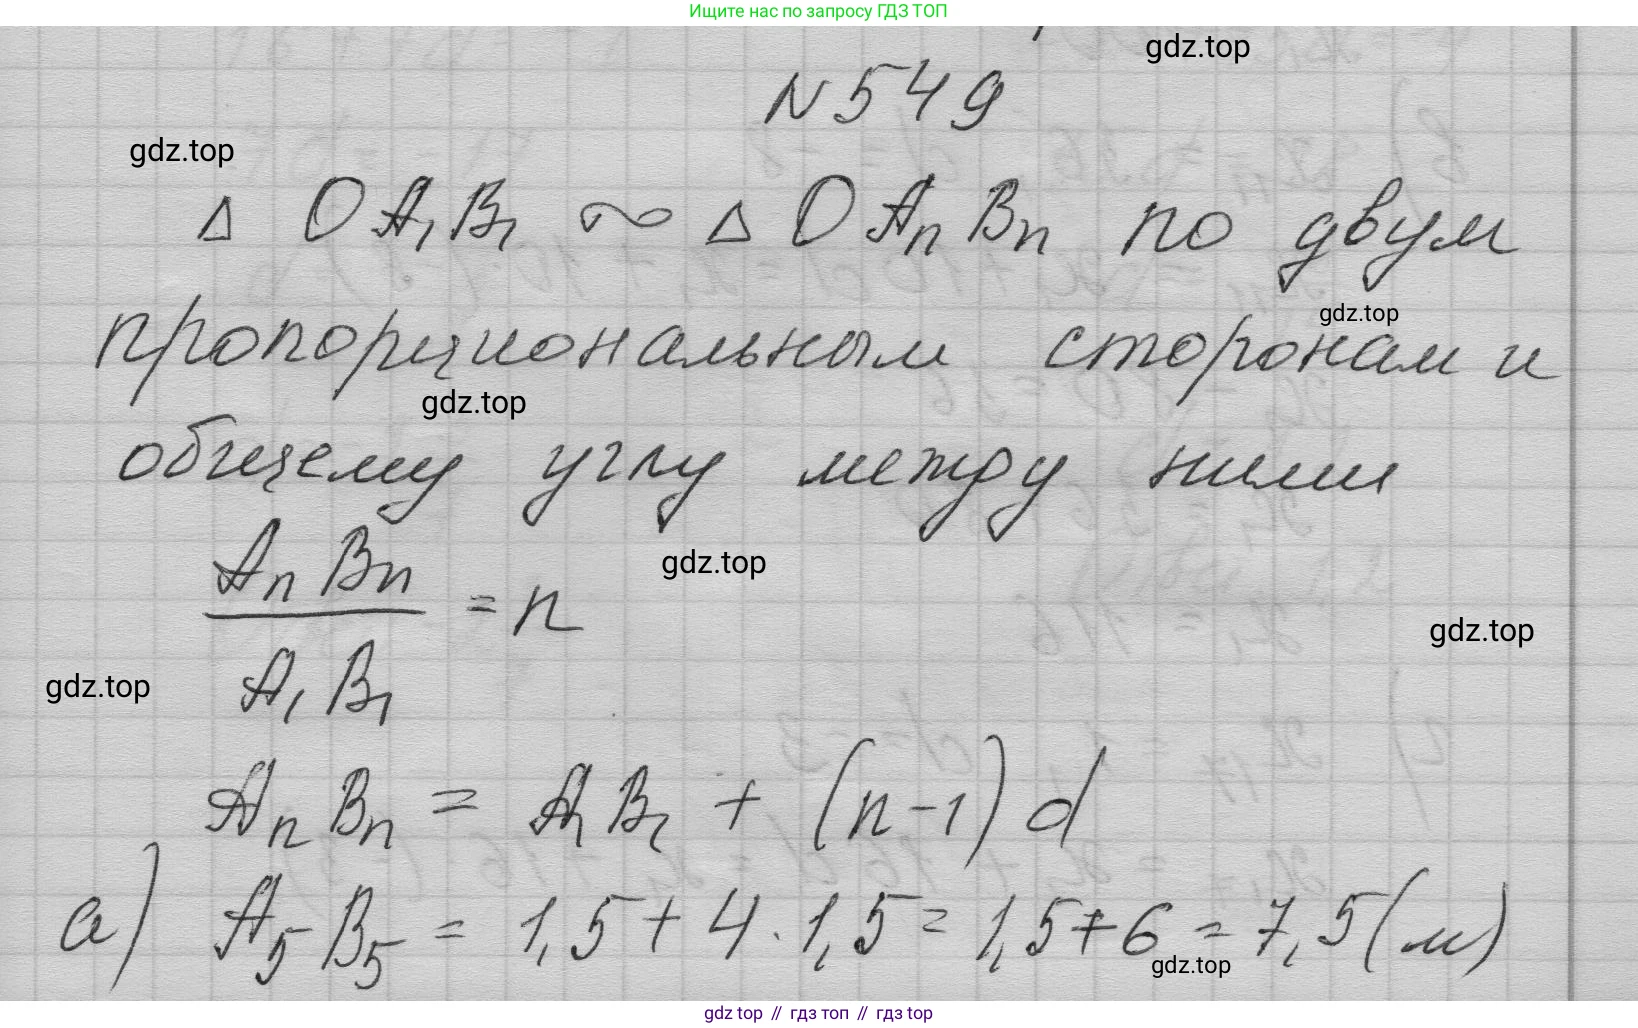 Ищите нас по запросу ГДЗ ТОП
gdz.top
N 549
gdz.top
Δ OA₁B₁ ~ Δ OAₙBₙ по двум
gdz.top
пропорциональным сторонам и
gdz.top
общему углу между ними
gdz.top
AₙBₙ / A₁B₁ = n
gdz.top
gdz.top
AₙBₙ = A₁B₁ + (n-1)d
а) A₅B₅ = 1,5 + 4 · 1,5 = 1,5 + 6 = 7,5 (м)
gdz.top
gdz top // гдз топ // gdz top